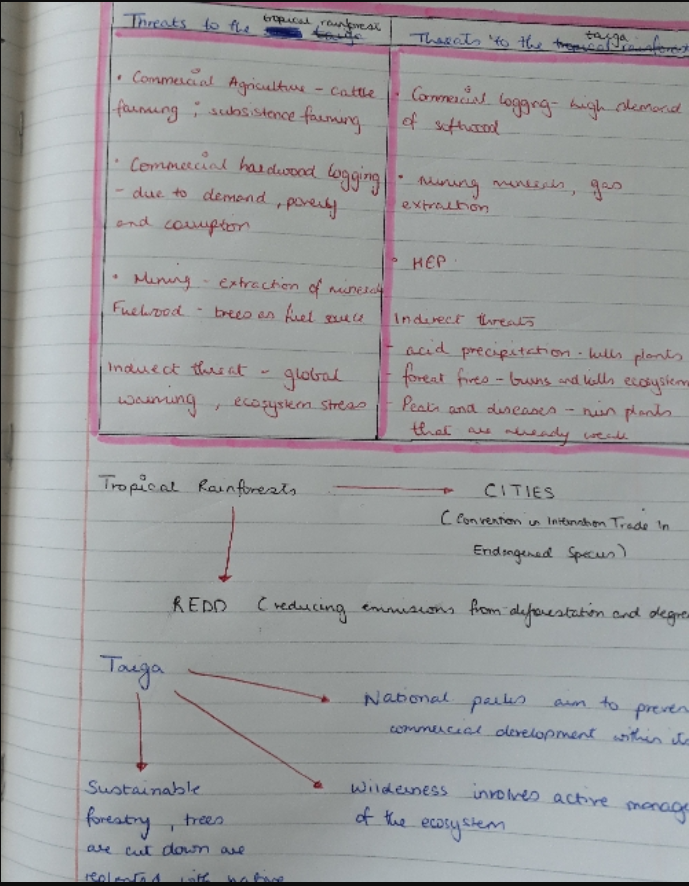 Threats to the tropical rainforest taiga
• Commercial Agriculture - cattle
farming ; subsistence farming
• Commercial hardwood logging
- due to demand, poverty
and corruption
• Mining - extraction of minerals
Fuelwood - trees as fuel source
Indirect threat - global
warming, ecosystem stress
Threats to the taiga tropical rainforest
• Commercial logging - high demand
of softwood
• Mining minerals, gas
extraction
• HEP
Indirect threats
- acid precipitation - kills plants
- forest fires - burns and kills ecosystem
- Pests and diseases - ruin plants
that are already weak
Tropical Rainforests → CITIES
(Convention in Internation Trade In
Endangered Species)
REDD (reducing emmisions from deforestation and degre
Taiga
National parks aim to preven
commercial development within its
Sustainable
forestry, trees
are cut down are
replanted with native
Wilderness involves active manage
of the ecosystem